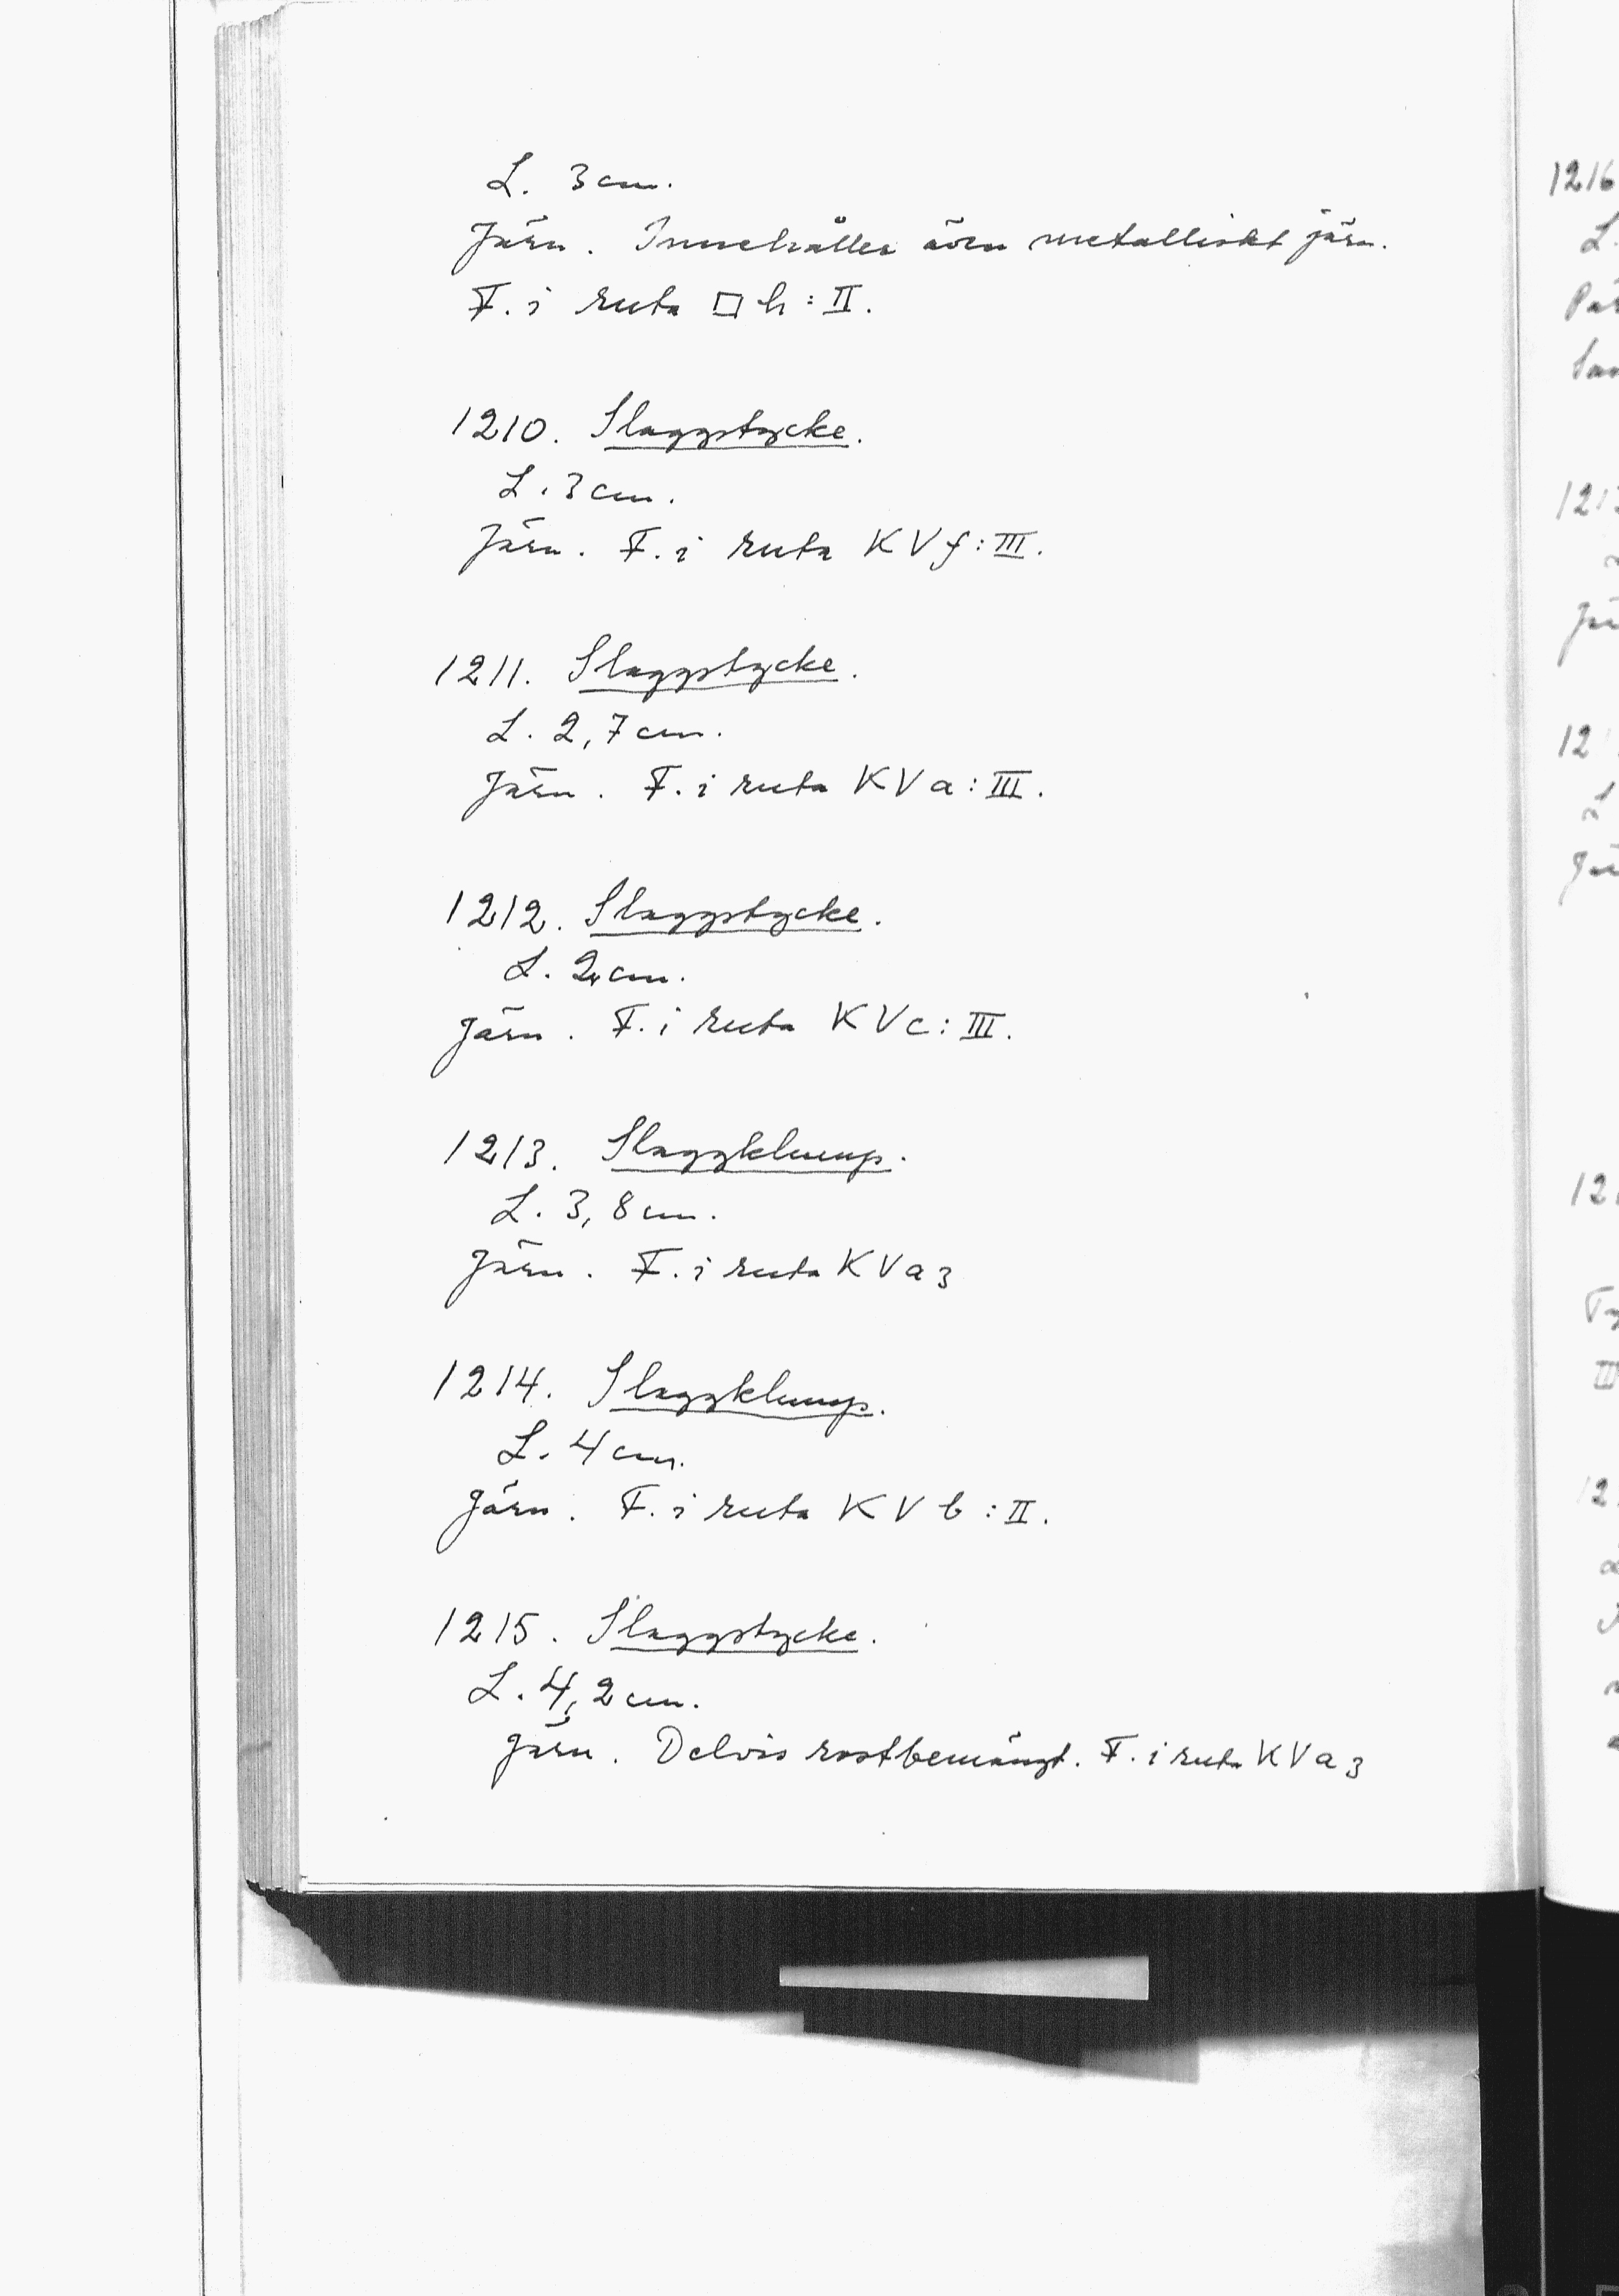 L. 3 cm.
Järn. Innehåller även metalliskt järn.
F. i ruta □ h : II.
1210. Slaggstycke.
L. 3 cm.
Järn. F. i ruta KV f : III.
1211. Slaggstycke.
L. 2,7 cm.
Järn. F. i ruta KV a : III.
1212. Slaggstycke.
L. 2 cm.
Järn. F. i ruta KV c : III.
1213. Slaggklump.
L. 3,8 cm.
Järn. F. i ruta KV a 3
1214. Slaggklump.
L. 4 cm.
Järn. F. i ruta KV b : II.
1215. Slaggstycke.
L. 4,2 cm.
Järn. Delvis rostbemängt. F. i ruta KV a 3
1216
L.